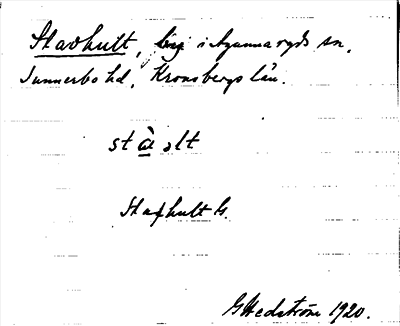 Stavhult, by i Agunnaryds sn,
Sunnerbo hd, Kronobergs län.
stà ̣lt
Stafhult G.
G Hedström 1920.